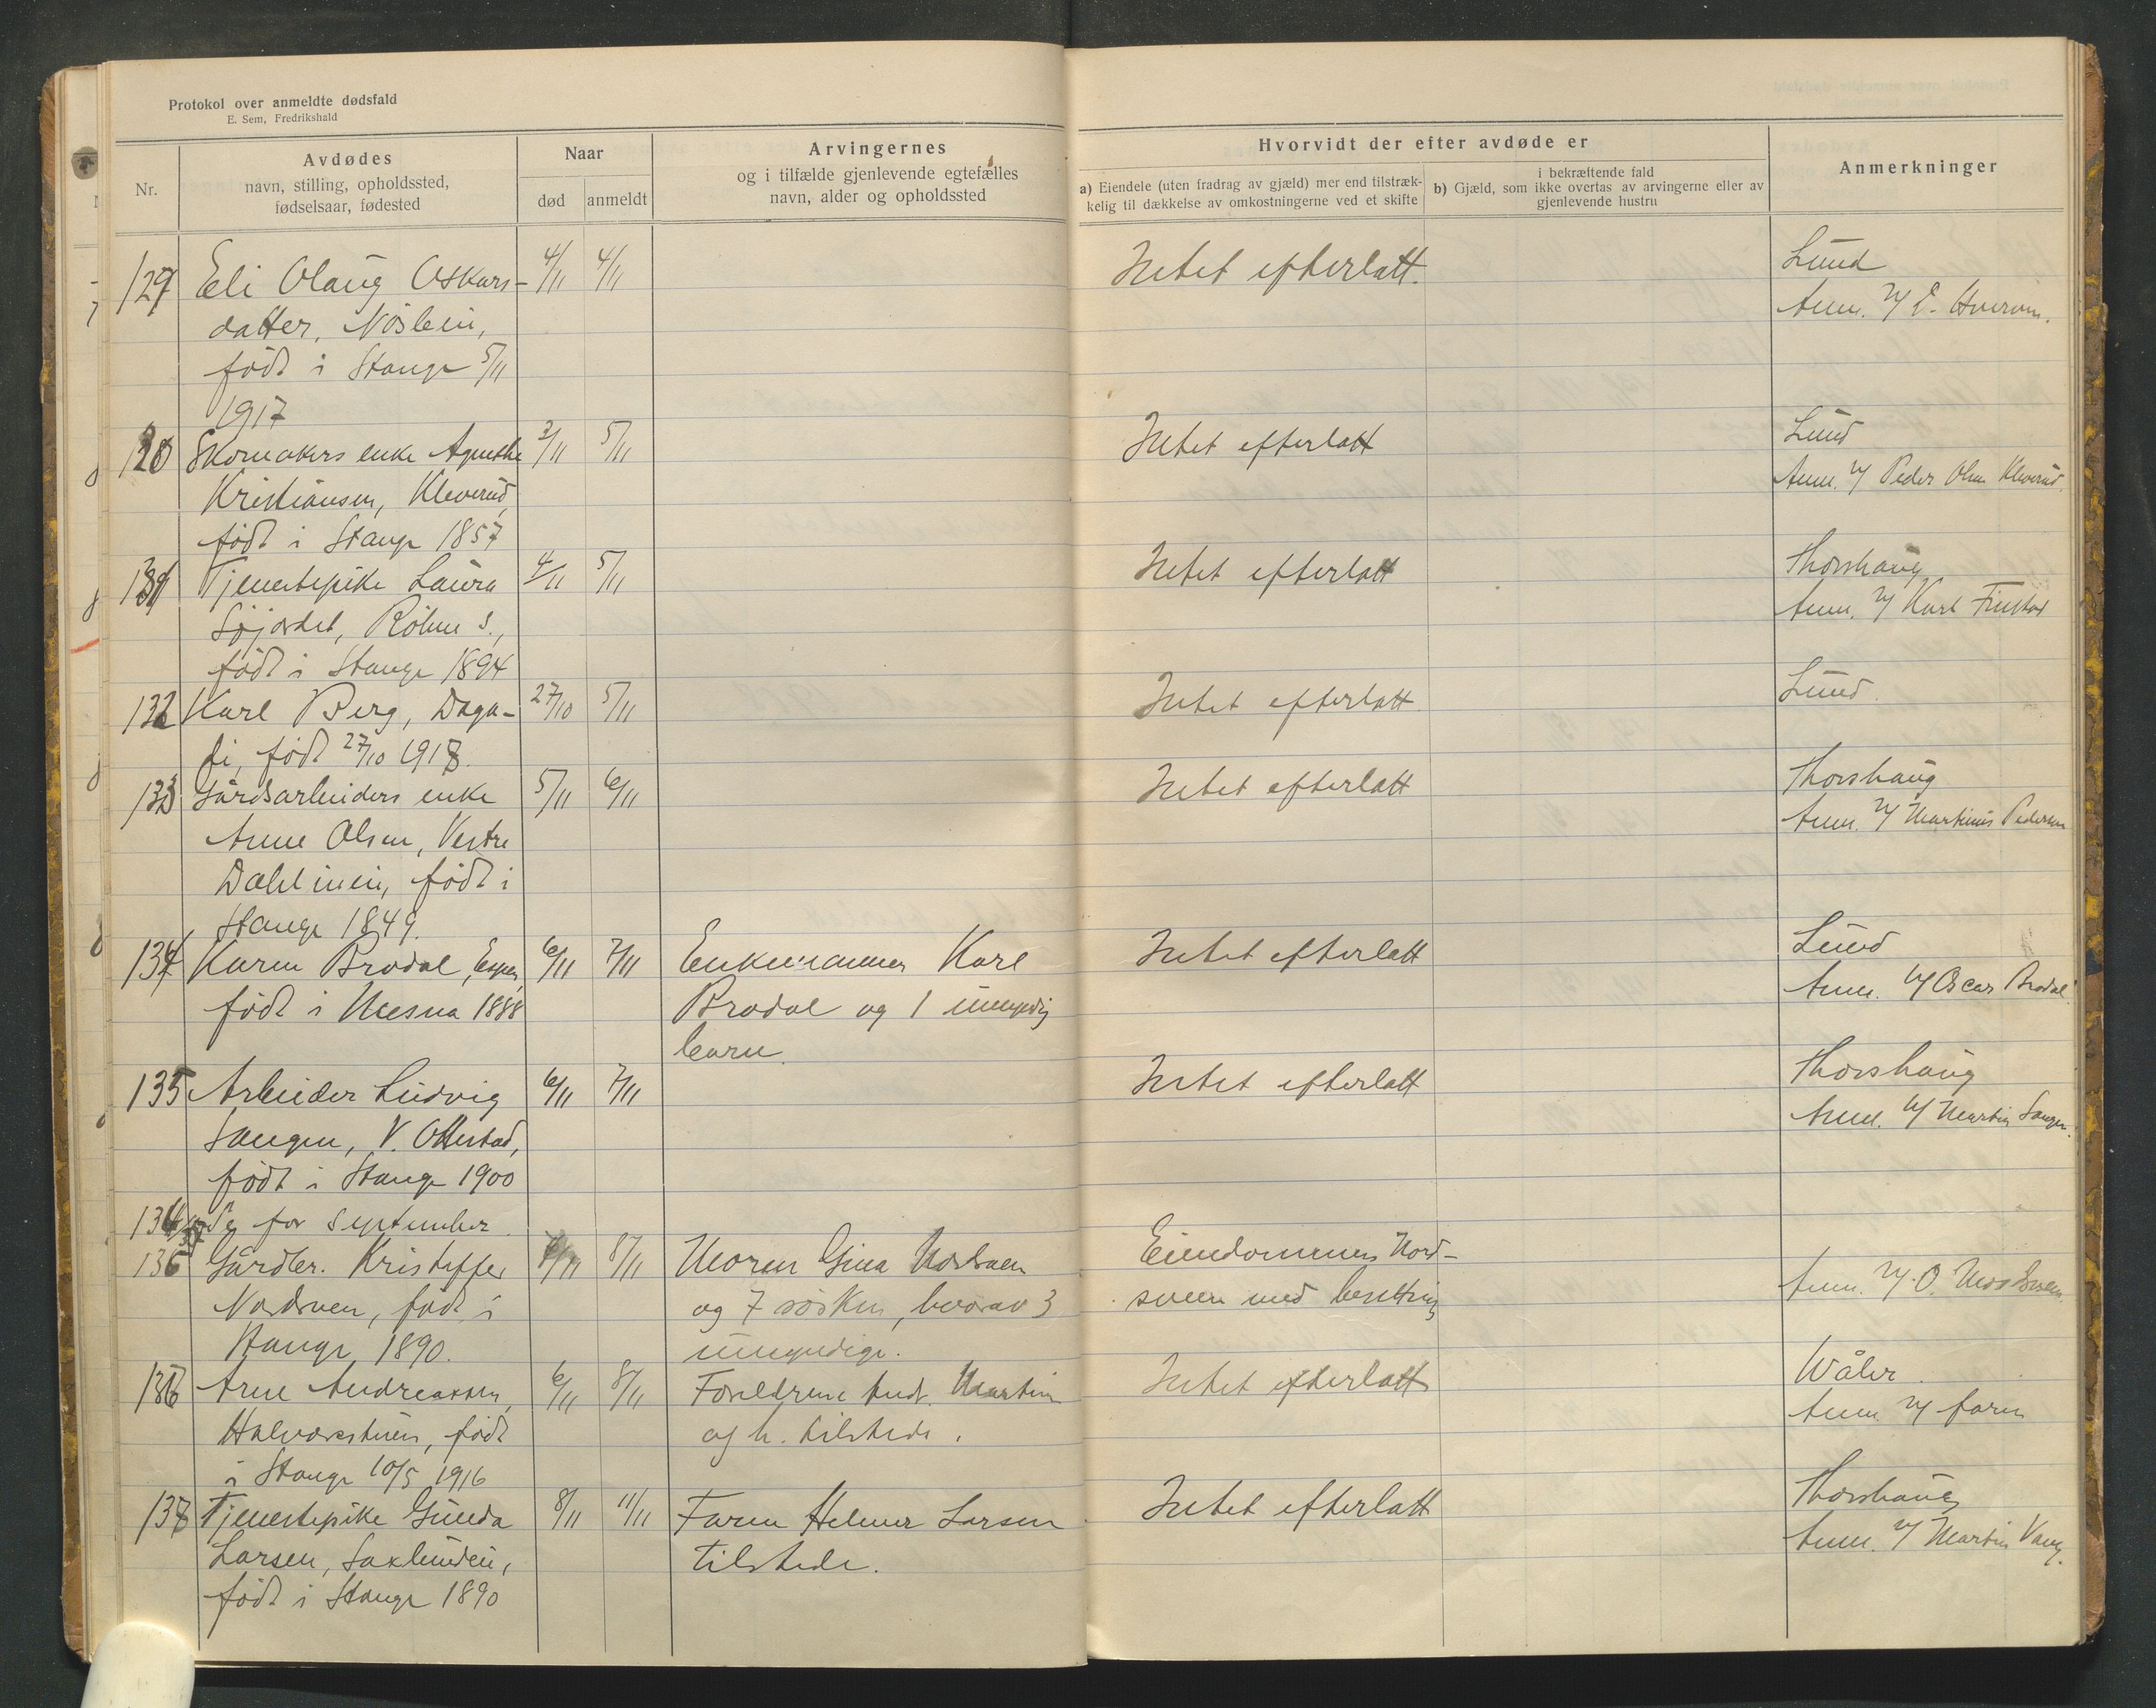 Protokol over anmeldte dødsfald
E. Sem, Fredrikshald
Nr.
Avdødes
navn, stilling, opholdssted,
fødselsaar, fødested
Naar
død
anmeldt
Arvingernes
og i tilfælde gjenlevende egtefælles
navn, alder og opholdssted
Hvorvidt der efter avdøde er
a) Eiendele (uten fradrag av gjæld) mer end tilstræk-
kelig til dækkelse av omkostningerne ved et skifte
i bekræftende fald
b) Gjæld, som ikke overtas av arvingerne eller av
gjenlevende hustru
Anmerkninger
129 Eli Olaug Oskars- 4/11 4/11 Intet efterlatt. Lund
datter, Nöslein, Anm. v/
født i Stange 5/11
1917
Skomakers enke Agnethe 3/11 5/11 Intet efterlatt Lund
Kristiansen, Kleverud, Anm. v/ Peder Olsen Kleverud.
født i Stange 1857
Tjenestepike Laura 4/11 5/11 Intet efterlatt Thorshaug
Søjordet, Röhne s., Anm. v/ Karl Finstad
født i Stange 1894
132 Karl Berg, Daga- 27/10 5/11 Intet efterlatt Lund.
li, født 27/10 1918.
133 Gårdsarbeiders enke 5/11 6/11 Intet efterlatt Thorshaug
Anne Olsen, Vestre Anm. v/ Martinus Pedersen
født i
Stange 1849.
134 Karen Brodal, Espen, 6/11 7/11 Enkemannen Karl Intet efterlatt Lund
født i Mesna 1888 Brodal og 1 umyndig Anm. v/ Oscar Brodal.
barn.
135 Arbeider Ludvig 6/11 7/11 Intet efterlatt Thorshaug
Sangen, V. Ottestad, Anm. v/ Martin Sangen.
født i Stange 1900
Se for September.
136 Gårdbr. Kristoffer 8/11 Moren Gina Nordsveen Eiendommen Nord-
Nordsveen, født i og 7 søsken, hvorav 3 sveen med besetning Anm. v/ O. Nordsveen.
Stange 1890. umyndige.
136 Arne Andreassen, 6/11 8/11 Foreldrene Andr. Martin Intet efterlatt Våler.
Halvorsstuen, født og h. tilstede. Anm. v/ faren
i Stange 10/5 1916
137 Tjenestepike Gunda 8/11 11/11 Faren Helmer Larsen Intet efterlatt Thorshaug
Larsen, Saxlunden, tilstede. Anm. v/ Martin Vang.
født i Stange 1890